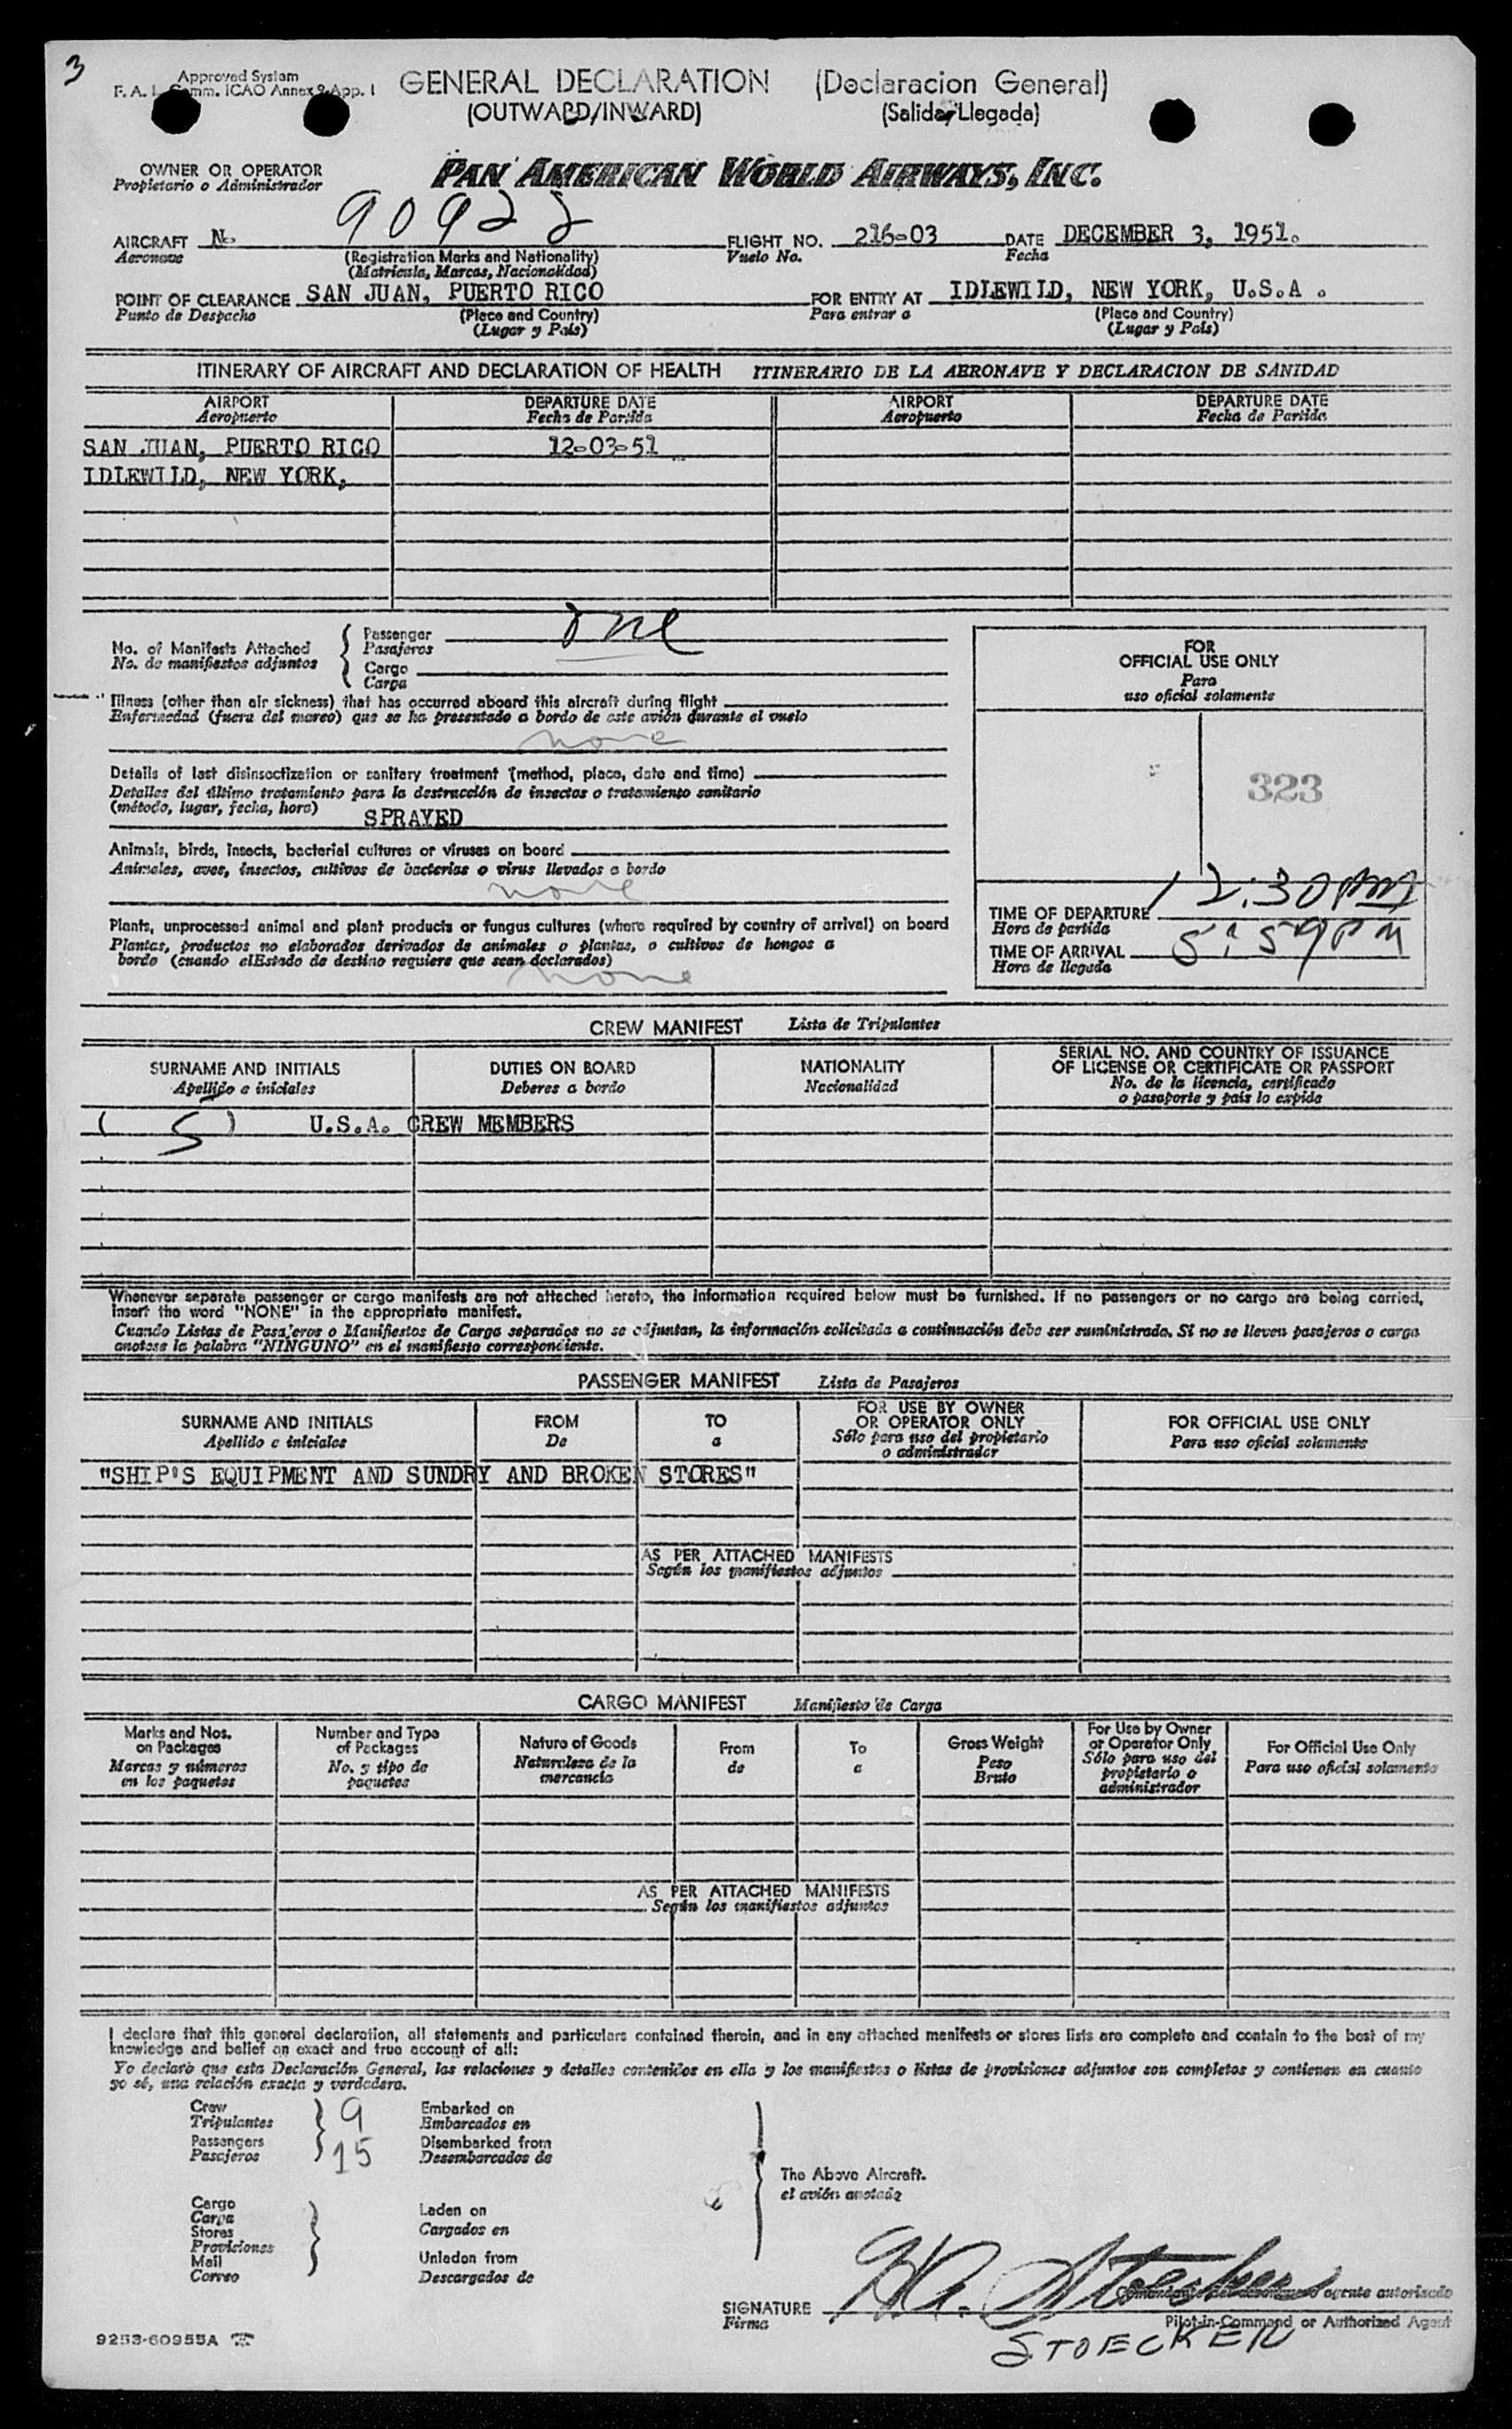 3
Approved System
F. A. L. Comm. ICAO Annex 9 App. 1
GENERAL DECLARATION (Declaracion General)
(OUTWARD/INWARD) (Salida/Llegada)
OWNER OR OPERATOR
Propietario o Administrador
PAN AMERICAN WORLD AIRWAYS, INC.
AIRCRAFT N. 90922 FLIGHT NO. 216-03 DATE DECEMBER 3, 1951.
Aeronave (Registration Marks and Nationality) Vuelo No. Fecha
(Matricula, Marcas, Nacionalidad)
POINT OF CLEARANCE SAN JUAN, PUERTO RICO FOR ENTRY AT IDLEWILD, NEW YORK, U.S.A .
Punto de Despacho (Place and Country) Para entrar a (Place and Country)
(Lugar y País) (Lugar y País)
ITINERARY OF AIRCRAFT AND DECLARATION OF HEALTH ITINERARIO DE LA AERONAVE Y DECLARACION DE SANIDAD
AIRPORT DEPARTURE DATE AIRPORT DEPARTURE DATE
Aeropuerto Fecha de Partida Aeropuerto Fecha de Partida
SAN JUAN, PUERTO RICO 12-03-51
IDLEWILD, NEW YORK,
No. of Manifests Attached
No. de manifiestos adjuntos
Passenger one
Pasajeros
Cargo
Carga
Illness (other than air sickness) that has occurred aboard this aircraft during flight
Enfermedad (fuera del mareo) que se ha presentado a bordo de este avión durante el vuelo
none
Details of last disinsectization or sanitary treatment (method, place, date and time)
Detalles del último tratamiento para la destrucción de insectos o tratamiento sanitario
(método, lugar, fecha, hora) SPRAYED
Animals, birds, insects, bacterial cultures or viruses on board
Animales, aves, insectos, cultivos de bacterias o virus llevados a bordo
none
Plants, unprocessed animal and plant products or fungus cultures (where required by country of arrival) on board
Plantas, productos no elaborados derivados de animales o plantas, o cultivos de hongos a
bordo (cuando elEstado de destino requiere que sean declarados)
none
FOR
OFFICIAL USE ONLY
Para
uso oficial solamente
323
TIME OF DEPARTURE 12:30 PM
Hora de partida
TIME OF ARRIVAL 5:59 PM
Hora de llegada
CREW MANIFEST Lista de Tripulantes
SURNAME AND INITIALS DUTIES ON BOARD NATIONALITY SERIAL NO. AND COUNTRY OF ISSUANCE
Apellido e iniciales Deberes a bordo Nacionalidad OF LICENSE OR CERTIFICATE OR PASSPORT
No. de la licencia, certificado
o pasaporte y país lo expide
( 5 ) U.S.A. CREW MEMBERS
Whenever separate passenger or cargo manifests are not attached hereto, the information required below must be furnished. If no passengers or no cargo are being carried,
insert the word "NONE" in the appropriate manifest.
Cuando Listas de Pasajeros o Manifiestos de Carga separados no se adjuntan, la información solicitada a continuación debe ser suministrada. Si no se lleven pasajeros o carga
anotese la palabra "NINGUNO" en el manifiesto correspondiente.
PASSENGER MANIFEST Lista de Pasajeros
SURNAME AND INITIALS FROM TO FOR USE BY OWNER FOR OFFICIAL USE ONLY
Apellido e iniciales De a OR OPERATOR ONLY Para uso oficial solamente
Sólo para uso del propietario
o administrador
"SHIP'S EQUIPMENT AND SUNDRY AND BROKEN STORES"
AS PER ATTACHED MANIFESTS
Según los manifiestos adjuntos
CARGO MANIFEST Manifiesto de Carga
Marks and Nos. on Packages
Marcas y números en los paquetes
Number and Type of Packages
No. y tipo de paquetes
Nature of Goods
Naturaleza de la mercancia
From
de
To
a
Gross Weight
Peso Bruto
For Use by Owner or Operator Only
Sólo para uso del propietario o administrador
For Official Use Only
Para uso oficial solamente
AS PER ATTACHED MANIFESTS
Según los manifiestos adjuntos
I declare that this general declaration, all statements and particulars contained therein, and in any attached manifests or stores lists are complete and contain to the best of my
knowledge and belief an exact and true account of all:
Yo declaro que esta Declaración General, las relaciones y detalles contenidos en ella y los manifiestos o listas de provisiones adjuntos son completos y contienen en cuanto
yo sé, una relación exacta y verdadera.
Crew 9 Embarked on
Tripulantes Embarcados en
Passengers 15 Disembarked from
Pasajeros Desembarcados de
The Above Aircraft.
el avión anotado
Cargo
Carga
Stores
Provisiones
Mail
Correo
Laden on
Cargados en
Unladen from
Descargados de
SIGNATURE
Firma
Pilot-in-Command or Authorized Agent
STOECKEN
9253-60955A